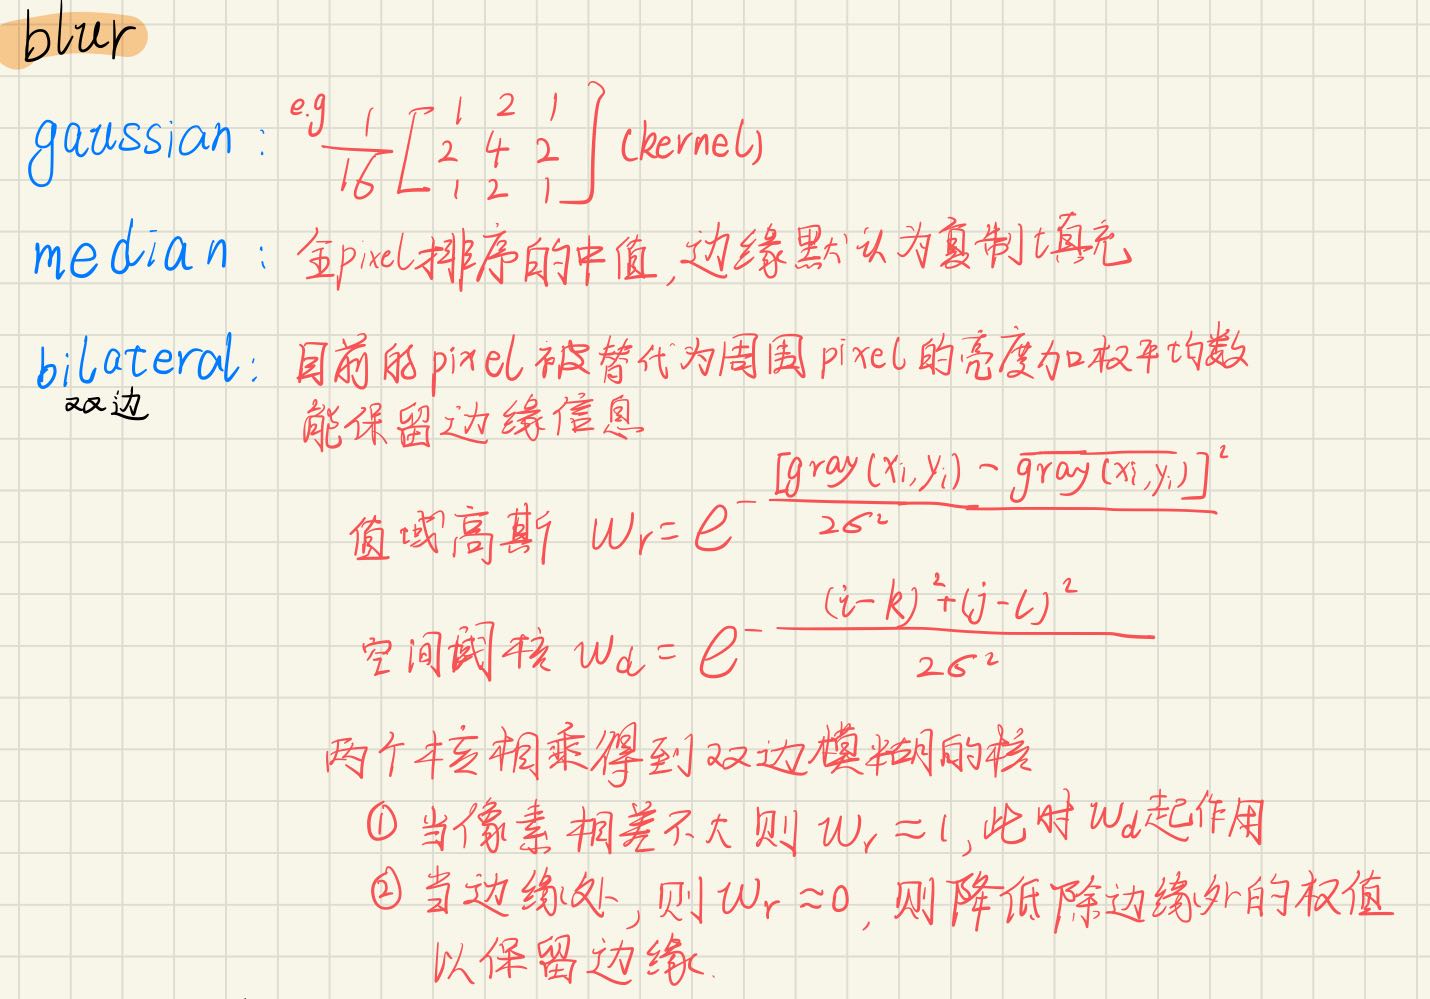 blur
gaussian: e.g 1/16 [1 2 1; 2 4 2; 1 2 1] (kernel)
median: 全pixel排序的中值,边缘默认为复制填充
bilateral: 目前的pixel被替代为周围pixel的亮度加权平均数
双边
能保留边缘信息
值域高斯 Wr = e^-([gray(xi,yi) - \overline{gray(xi,yi)}]²/2σ²)
空间域核 Wd = e^-((i-k)²+(j-l)²/2σ²)
两个核相乘得到双边模糊的核
① 当像素相差不大则 Wr≈1,此时Wd起作用
② 当边缘处,则Wr≈0,则降低除边缘外的权值
以保留边缘.